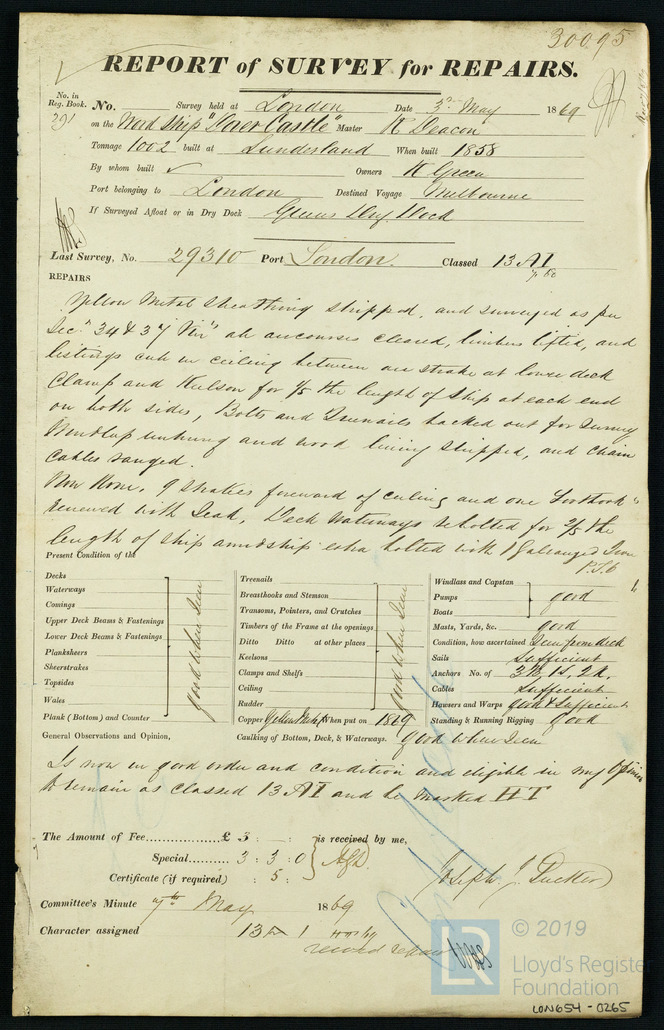 30095
REPORT of SURVEY for REPAIRS.
No. in Reg. Book. No. Survey held at London Date 3rd May 1869
291 on the Wood Ship "Dover Castle" Master R Deacon
Tonnage 1002 built at Sunderland When built 1858
By whom built Owners R Green
Port belonging to London Destined Voyage Melbourne
If Surveyed Afloat or in Dry Dock Greens Dry Dock
Last Survey, No. 29310 Port London. Classed 13 A1
REPAIRS
Yellow Metal Sheathing stripped, and surveyed as per
Sec. 34 & 37 air courses cleared, limbers lifted, and
listings cut in ceiling between one strake at lower deck
Clamp and Keelson for 1/5 the length of ship at each end
on both sides, Bolts and Treenails backed out for survey
Windlass unhung and wood lining stripped, and chain
Cables ranged.
Now Done, 9 strakes forward of ceiling and one Foothook
renewed with Teak, Deck Waterways rebolted for 2/5 the
length of ship amidship extra bolted with 1 Galvanized Iron
P.T.O
Present Condition of the
Decks
Waterways
Comings
Upper Deck Beams & Fastenings
Lower Deck Beams & Fastenings
Planksheers
Sheerstrakes
Topsides
Wales
Plank (Bottom) and Counter
good when seen
Treenails
Breasthooks and Stemson
Transoms, Pointers, and Crutches
Timbers of the Frame at the openings
Ditto Ditto at other places
Keelsons
Clamps and Shelfs
Ceiling
Rudder
good when seen
Copper Yellow Metal When put on 1869
Windlass and Capstan
Pumps
Boats
good
Masts, Yards, &c. good
Condition, how ascertained Seen from deck
Sails Sufficient
Anchors No. of 3B, 1S, 2K.
Cables Sufficient
Hausers and Warps good & sufficient
Standing & Running Rigging good
General Observations and Opinion, Caulking of Bottom, Deck, & Waterways. good when seen
Is now in good order and condition and eligible in my Opinion
to remain as Classed 13 A1 and be marked HT
The Amount of Fee £ 3 : : is received by me,
Special 3 : 3 : 0
Certificate (if required) : 5 :
Joseph J Tucker
Committee's Minute 7th May 1869
Character assigned 13 A 1
record repairs
© 2019
LR
Lloyd's Register
Foundation
LON654-0265